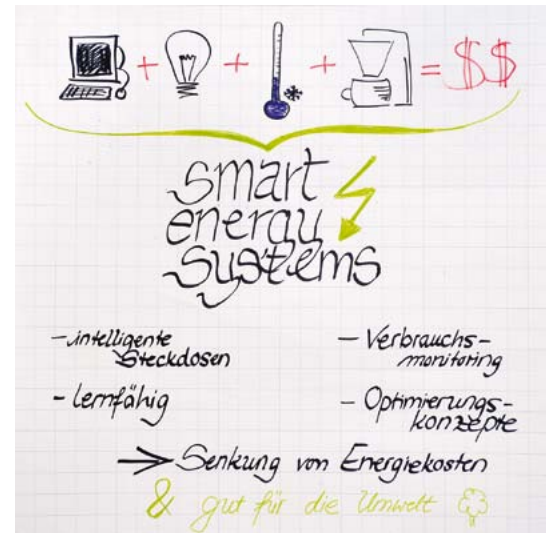 + + + = $$
smart
energy
systems
- intelligente
Steckdosen
- lernfähig
- Verbrauchs-
monitoring
- Optimierungs-
konzepte
→ Senkung von Energiekosten
& gut für die Umwelt